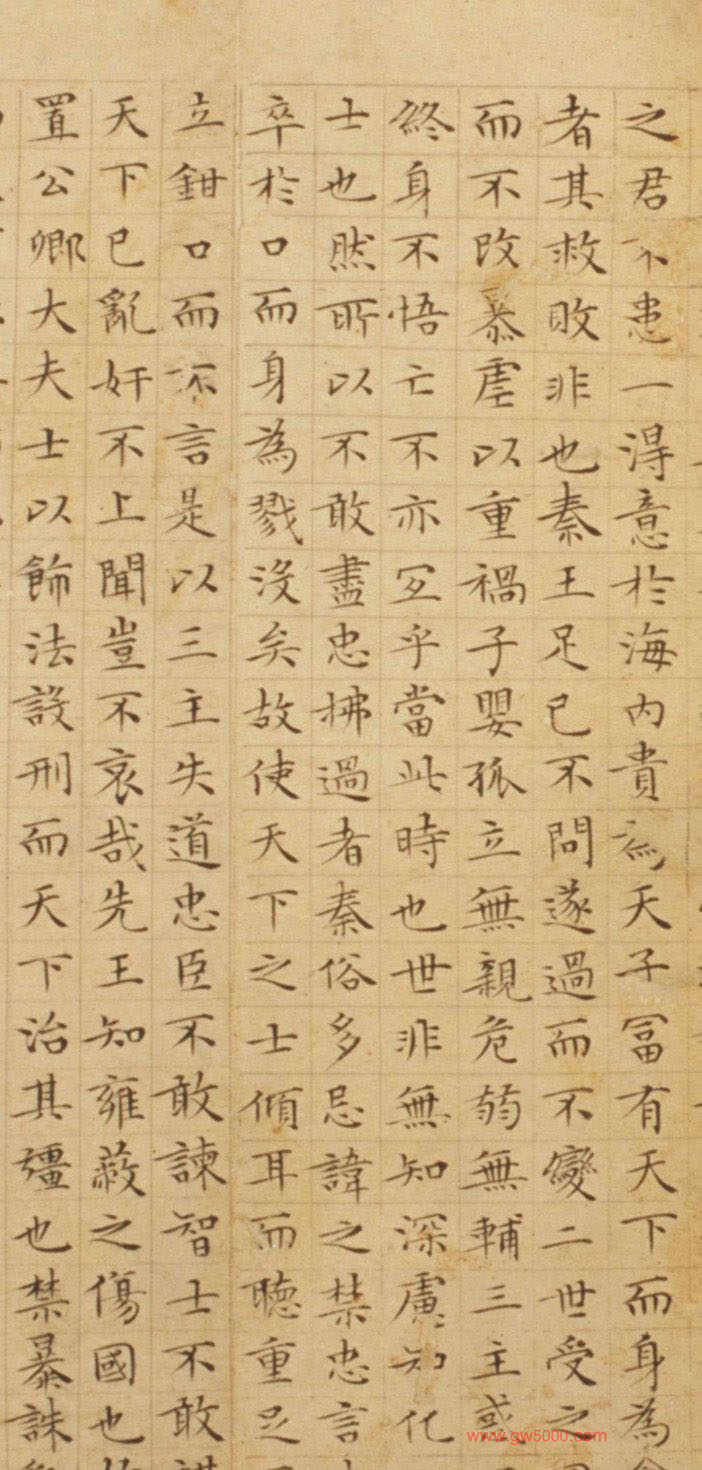 之君不患一得意於海内貴為天子冨有天下而身為
者其救敗非也秦王足己不問遂過而不變二世受之
而不改暴虐以重禍子嬰孤立無親危弱無輔三主或
終身不悟亡不亦宜乎當此時也世非無知深慮知化
士也然所以不敢盡忠拂過者秦俗多忌諱之禁忠言
卒於口而身為戮没矣故使天下之士傾耳而聴重足
立鉗口而不言是以三主失道忠臣不敢諫智士不敢
天下已亂奸不上聞豈不哀哉先王知雍蔽之傷國也
置公卿大夫士以飾法設刑而天下治其彊也禁暴誅
www.gw5000.com